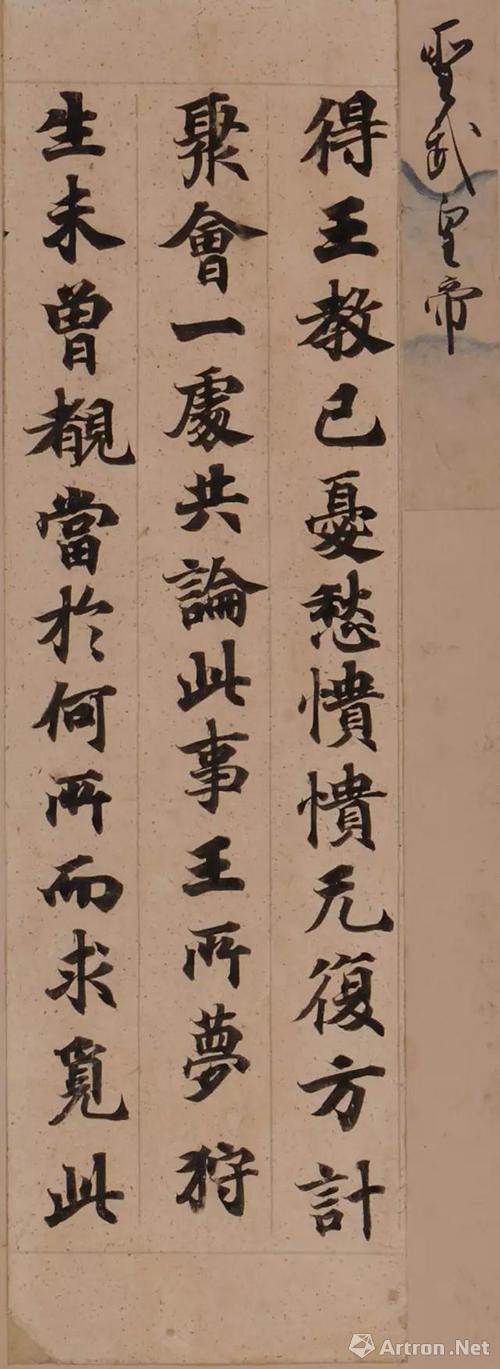 聖武皇帝
得王教已憂愁憒憒无復方計
聚會一處共論此事王所夢狩
生未曾覩當於何所而求覓此
Artron.Net